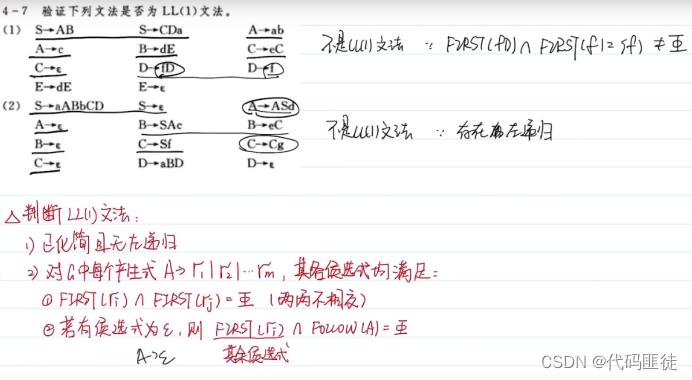 4-7 验证下列文法是否为 LL(1)文法。
(1) S→AB S→CDa A→ab
A→c B→dE C→eC
C→ε D→fD D→f
E→dE E→ε
不是LL(1)文法 ∵ FIRST(fD)∩FIRST(f)={f}≠Φ
(2) S→aABbCD S→ε A→ASd
A→ε B→SAc B→eC
B→ε C→Sf C→Cg
C→ε D→aBD D→ε
不是LL(1)文法 ∵ 存在左递归
△判断LL(1)文法:
1) 已化简且无左递归
2) 对G中每个产生式 A→r1|r2|…rm, 其各候选式均满足:
① FIRST(ri)∩FIRST(rj)=Φ (两两不相交)
② 若有候选式为ε, 则 FIRST(ri)∩FOLLOW(A)=Φ
A→ε 其余候选式
CSDN @代码匪徒